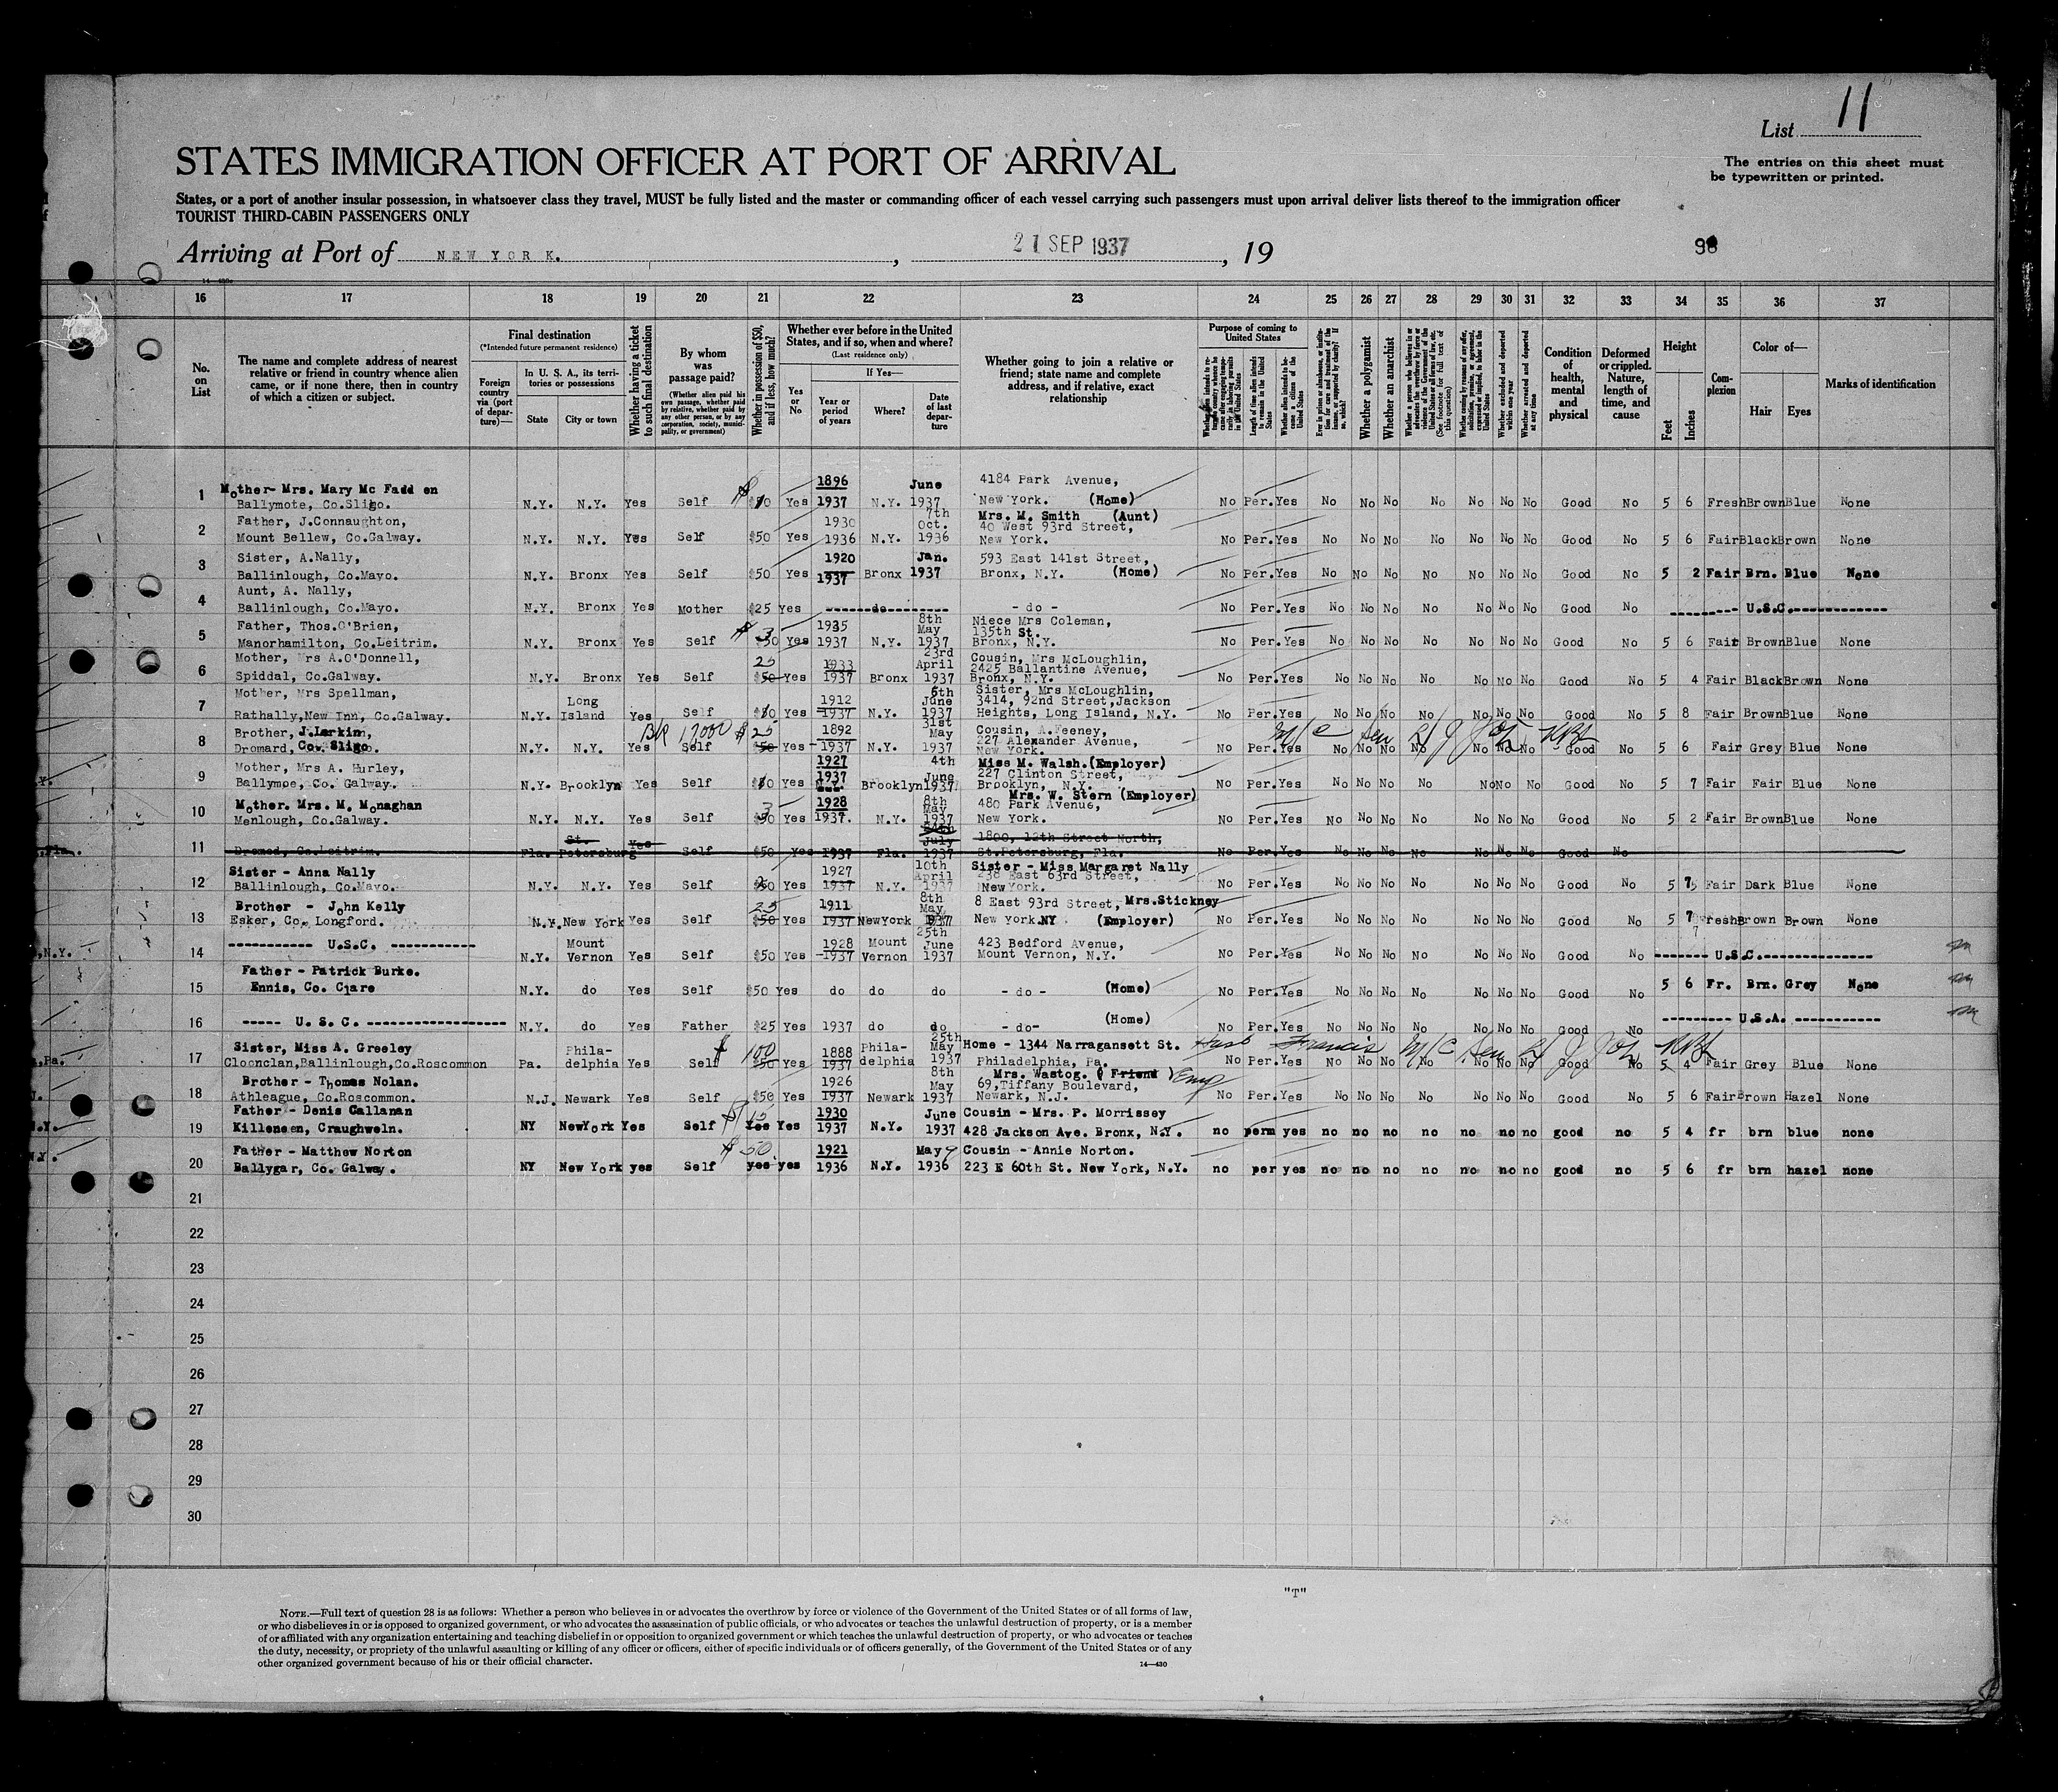 List 11
The entries on this sheet must
be typewritten or printed.
STATES IMMIGRATION OFFICER AT PORT OF ARRIVAL
States, or a port of another insular possession, in whatsoever class they travel, MUST be fully listed and the master or commanding officer of each vessel carrying such passengers must upon arrival deliver lists thereof to the immigration officer
TOURIST THIRD-CABIN PASSENGERS ONLY
Arriving at Port of NEW YORK. , 21 SEP 1937 , 19
16 17 18 19 20 21 22 23 24 25 26 27 28 29 30 31 32 33 34 35 36 37
No. on List
The name and complete address of nearest
relative or friend in country whence alien
came, or if none there, then in country
of which a citizen or subject.
Final destination
(*Intended future permanent residence)
Foreign country via (port of departure)—
In U. S. A., its territories or possessions
State
City or town
Whether having a ticket to such final destination
By whom was passage paid?
(Whether alien paid his own passage, whether paid by relative, whether paid by any other person, or by any corporation, society, municipality, or government)
Whether in possession of $50, and if less, how much?
Whether ever before in the United
States, and if so, when and where?
(Last residence only)
Yes or No
If Yes—
Year or period of years
Where?
Date of last departure
Whether going to join a relative or
friend; state name and complete
address, and if relative, exact
relationship
Purpose of coming to United States
Length of time alien intends to remain in the United States
Whether alien intends to become a citizen of the United States
Whether a polygamist
Whether an anarchist
Whether arrested and deported at any time
Condition of health, mental and physical
Deformed or crippled. Nature, length of time, and cause
Height
Feet
Inches
Complexion
Color of—
Hair
Eyes
Marks of identification
1 Mother- Mrs. Mary Mc Fadden 1896 June 4184 Park Avenue,
Ballymote, Co.Sligo. N.Y. N.Y. Yes Self Yes 1937 N.Y. 1937 New York. (Home) No Per. Yes No No No No No No No Good No 5 6 Fresh Brown Blue None
2 Father, J.Connaughton, 1930 7th Oct. Mrs. M. Smith (Aunt) 40 West 93rd Street,
Mount Bellew, Co.Galway. N.Y. N.Y. Yes Self $50 Yes 1936 N.Y. 1936 New York. No Per. Yes No No No No No No No Good No 5 6 Fair Black Brown None
3 Sister, A.Nally, 1920 Jan. 593 East 141st Street,
Ballinlough, Co.Mayo. N.Y. Bronx Yes Self $50 Yes 1937 Bronx 1937 Bronx, N.Y. (Home) No Per. Yes No No No No No No No Good No 5 2 Fair Brn. Blue None
4 Aunt, A. Nally,
Ballinlough, Co.Mayo. N.Y. Bronx Yes Mother $25 Yes -------do--------- - do - No Per. Yes No No No No No No No Good No -------- U.S.C.------------
5 Father, Thos.O'Brien, 1935 8th May Niece Mrs Coleman, 135th St.
Manorhamilton, Co.Leitrim. N.Y. Bronx Yes Self Yes 1937 N.Y. 1937 Bronx, N.Y. No Per. Yes No No No No No No No Good No 5 6 Fair Brown Blue None
6 Mother, Mrs A.O'Donnell, 25 1933 23rd April Cousin, Mrs McLoughlin, 2425 Ballantine Avenue,
Spiddal, Co.Galway. N.Y. Bronx Yes Self $50 Yes 1937 Bronx 1937 Bronx, N.Y. No Per. Yes No No No No No No No Good No 5 4 Fair Black Brown None
7 Mother, Mrs Spellman, Long 1912 6th June Sister, Mrs McLoughlin, 3414, 92nd Street,Jackson
Rathally,New Inn, Co.Galway. N.Y. Island Yes Self Yes 1937 N.Y. 1937 Heights, Long Island, N.Y. No Per. Yes No No No No No No No Good No 5 8 Fair Brown Blue None
8 Brother, J.Larkin, $25 1892 31st May Cousin, A.Feeney, 227 Alexander Avenue,
Dromard, Co. Sligo. N.Y. N.Y. Yes Self $50 Yes 1937 N.Y. 1937 New York. No Per. Yes No No No No No No No Good No 5 6 Fair Grey Blue None
9 Mother, Mrs A. Hurley, 1927 1937 4th June Miss M. Walsh.(Employer) 227 Clinton Street,
Ballymoe, Co. Galway. N.Y. Brooklyn Yes Self Yes Brooklyn 1937 Brooklyn, N.Y. No Per. Yes No No No No No No No Good No 5 7 Fair Fair Blue None
10 Mother. Mrs. M. Monaghan 1928 8th May Mrs. W. Stern (Employer) 480 Park Avenue,
Menlough, Co.Galway. N.Y. N.Y. Yes Self Yes 1937. N.Y. 1937 New York. No Per. Yes No No No No No No No Good No 5 2 Fair Brown Blue None
11 St. Yes July 1800, 12th Street North,
Dromod, Co.Leitrim. Fla. Petersburg Self $50 Yes 1937 Fla. 1937 St.Petersburg, Fla. No Per. Yes No No No No No No No Good No
12 Sister - Anna Nally 1927 10th April Sister - Miss Margaret Nally 238 East 63rd Street,
Ballinlough, Co.Mayo. N.Y. N.Y. Yes Self Yes 1937 N.Y. 1937 New York. No Per. Yes No No No No No No No Good No 5 Fair Dark Blue None
13 Brother - John Kelly 25 1911 8th May 8 East 93rd Street, Mrs.Stickney
Esker, Co. Longford. N.Y. New York Yes Self $50 Yes 1937 NewYork 1937 New York.NY (Employer) No Per. Yes No No No No No No No Good No 5 7 Fresh Brown Brown None
14 ----------- U.S.C. ----------- Mount 1928 Mount 25th June 423 Bedford Avenue,
N.Y. Vernon Yes Self $50 Yes 1937 Vernon 1937 Mount Vernon, N.Y. No Per. Yes No No No No No No No Good No ------- U.S.C.--------------
15 Father - Patrick Burke.
Ennis, Co. Clare N.Y. do Yes Self $50 Yes do do do - do - (Home) No Per. Yes No No No No No No No Good No 5 6 Fr. Brn. Grey None
16 ----- U. S. C. ------------------ N.Y. do Yes Father $25 Yes 1937 do do - do- (Home) No Per. Yes No No No No No No No Good No --------- U.S.A. -----------
17 Sister, Miss A. Greeley Phila- 100 1888 Phila- 25th May Home - 1344 Narragansett St.
Cloonclan,Ballinlough,Co.Roscommon Pa. delphia Yes Self $50 Yes 1937 delphia 1937 Philadelphia, Pa. No Per. Yes No No No No No No No Good No 5 4 Fair Grey Blue None
18 Brother - Thomas Nolan. 1926 8th May Mrs. Wastog. (Friend) Emp 69,Tiffany Boulevard,
Athleague, Co.Roscommon. N.J. Newark Yes Self $50 Yes 1937 Newark 1937 Newark, N.J. No Per. Yes No No No No No No No Good No 5 6 Fair Brown Hazel None
19 Father - Denis Callanan $15 1930 June Cousin - Mrs. P. Morrissey
Killeneen, Craughweln. NY NewYork Yes Self Yes Yes 1937 N.Y. 1937 428 Jackson Ave. Bronx, N.Y. no perm yes no no no no no no no good no 5 4 fr brn blue none
20 Father - Matthew Norton $50. 1921 May 9 Cousin - Annie Norton.
Ballygar, Co. Galway. NY New York yes Self yes yes 1936 N.Y. 1936 223 E 60th St. New York, N.Y. no per yes no no no no no no no good no 5 6 fr brn hazel none
21
22
23
24
25
26
27
28
29
30
"T"
NOTE.—Full text of question 28 is as follows: Whether a person who believes in or advocates the overthrow by force or violence of the Government of the United States or of all forms of law,
or who disbelieves in or is opposed to organized government, or who advocates the assassination of public officials, or who advocates or teaches the unlawful destruction of property, or is a member
of or affiliated with any organization entertaining and teaching disbelief in or opposition to organized government or which teaches the unlawful destruction of property, or who advocates or teaches
the duty, necessity, or propriety of the unlawful assaulting or killing of any officer or officers, either of specific individuals or of officers generally, of the Government of the United States or of any
other organized government because of his or their official character.
14—430